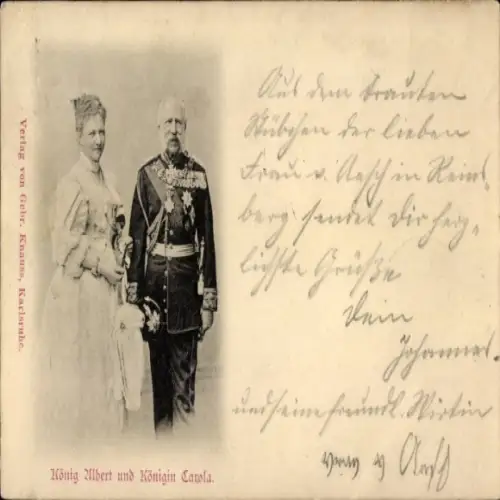 Verlag von Gebr. Knauss, Karlsruhe.
König Albert und Königin Carola.
Aus dem trauten
Stübchen der lieben
Frau v. Aesch in Reins-
berg sendet Dir herz-
lichste Grüße
Dein
Johannes.
und seine freundl. Wirtin
v Aesch